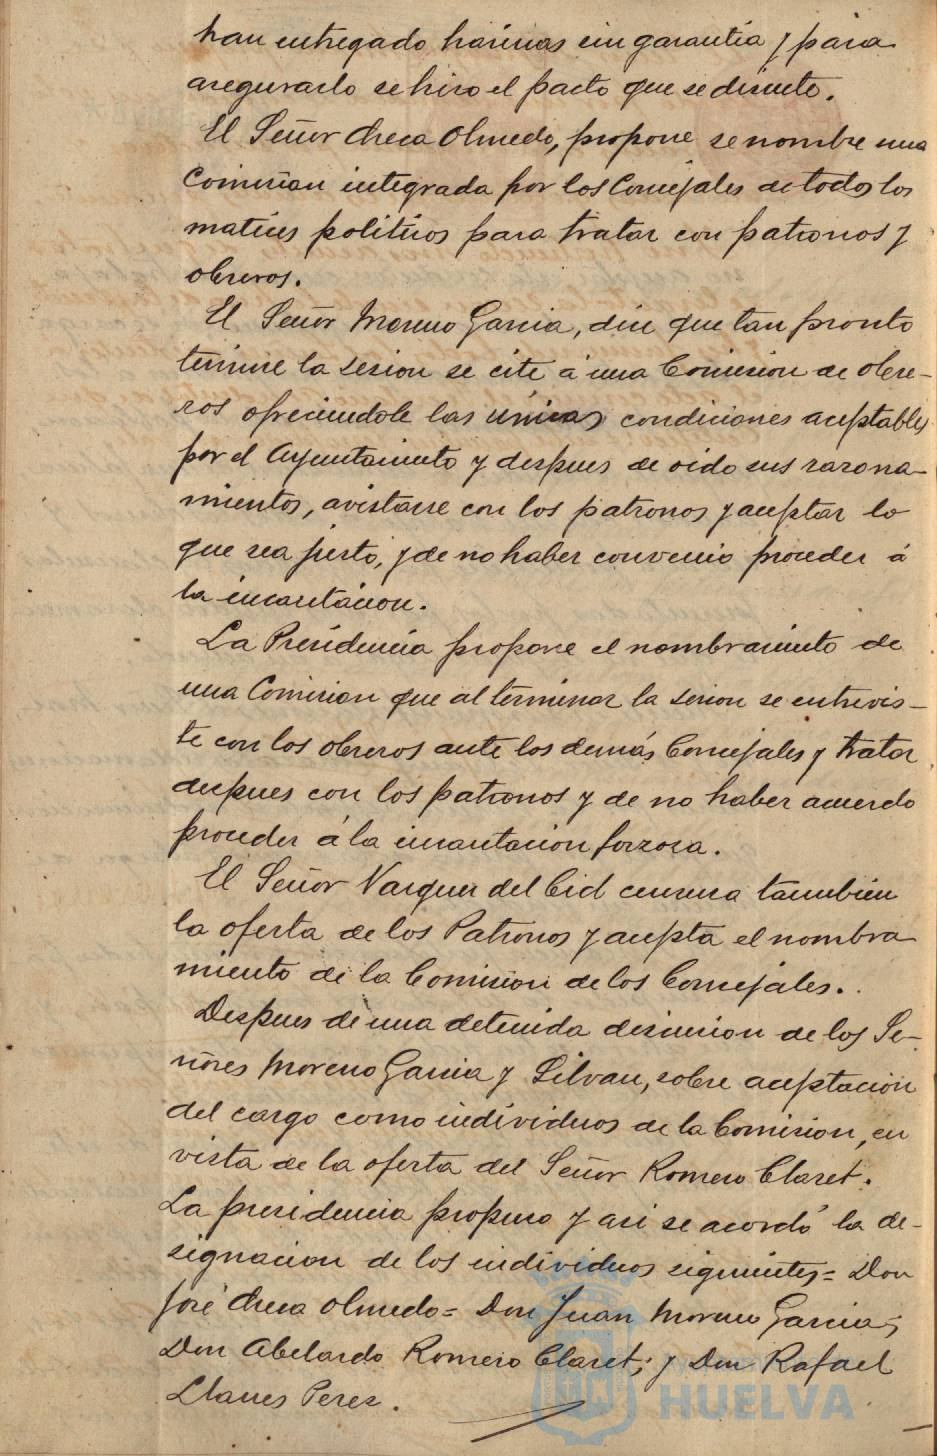 han entregado harinas sin garantia y para
asegurarlo se hizo el pacto que se discute.
El Señor Checa Olmedo, propone se nombre una
Comision integrada por los Concejales de todos los
matices politicos para tratar con patronos y
obreros.
El Señor Moreno Garcia, dice que tan pronto
termine la sesion se cite á una Comision de obre-
ros ofreciendole las únicas condiciones aceptables
por el Ayuntamiento y despues de oido sus razona-
mientos, avistarse con los patronos y aceptar lo
que sea justo, y de no haber convenio proceder á
la incautacion.
La Presidencia propone el nombramiento de
una Comision que al terminar la sesion se entrevis-
te con los obreros ante los demás Concejales y tratar
despues con los patronos y de no haber acuerdo
proceder á la incautacion forzosa.
El Señor Vazquez del Cid censura tambien
la oferta de los Patronos y acepta el nombra-
miento de la Comision de los Concejales.
Despues de una detenida discusion de los Se-
ñores Moreno Garcia y Silvan, sobre aceptacion
del cargo como individuos de la Comision, en
vista de la oferta del Señor Romero Claret.
La presidencia propuso y asi se acordó la de-
signacion de los individuos siguientes= Don
José Checa Olmedo= Don Juan Moreno Garcia;
Don Abelardo Romero Claret; y Don Rafael
Llanes Perez.
HUELVA